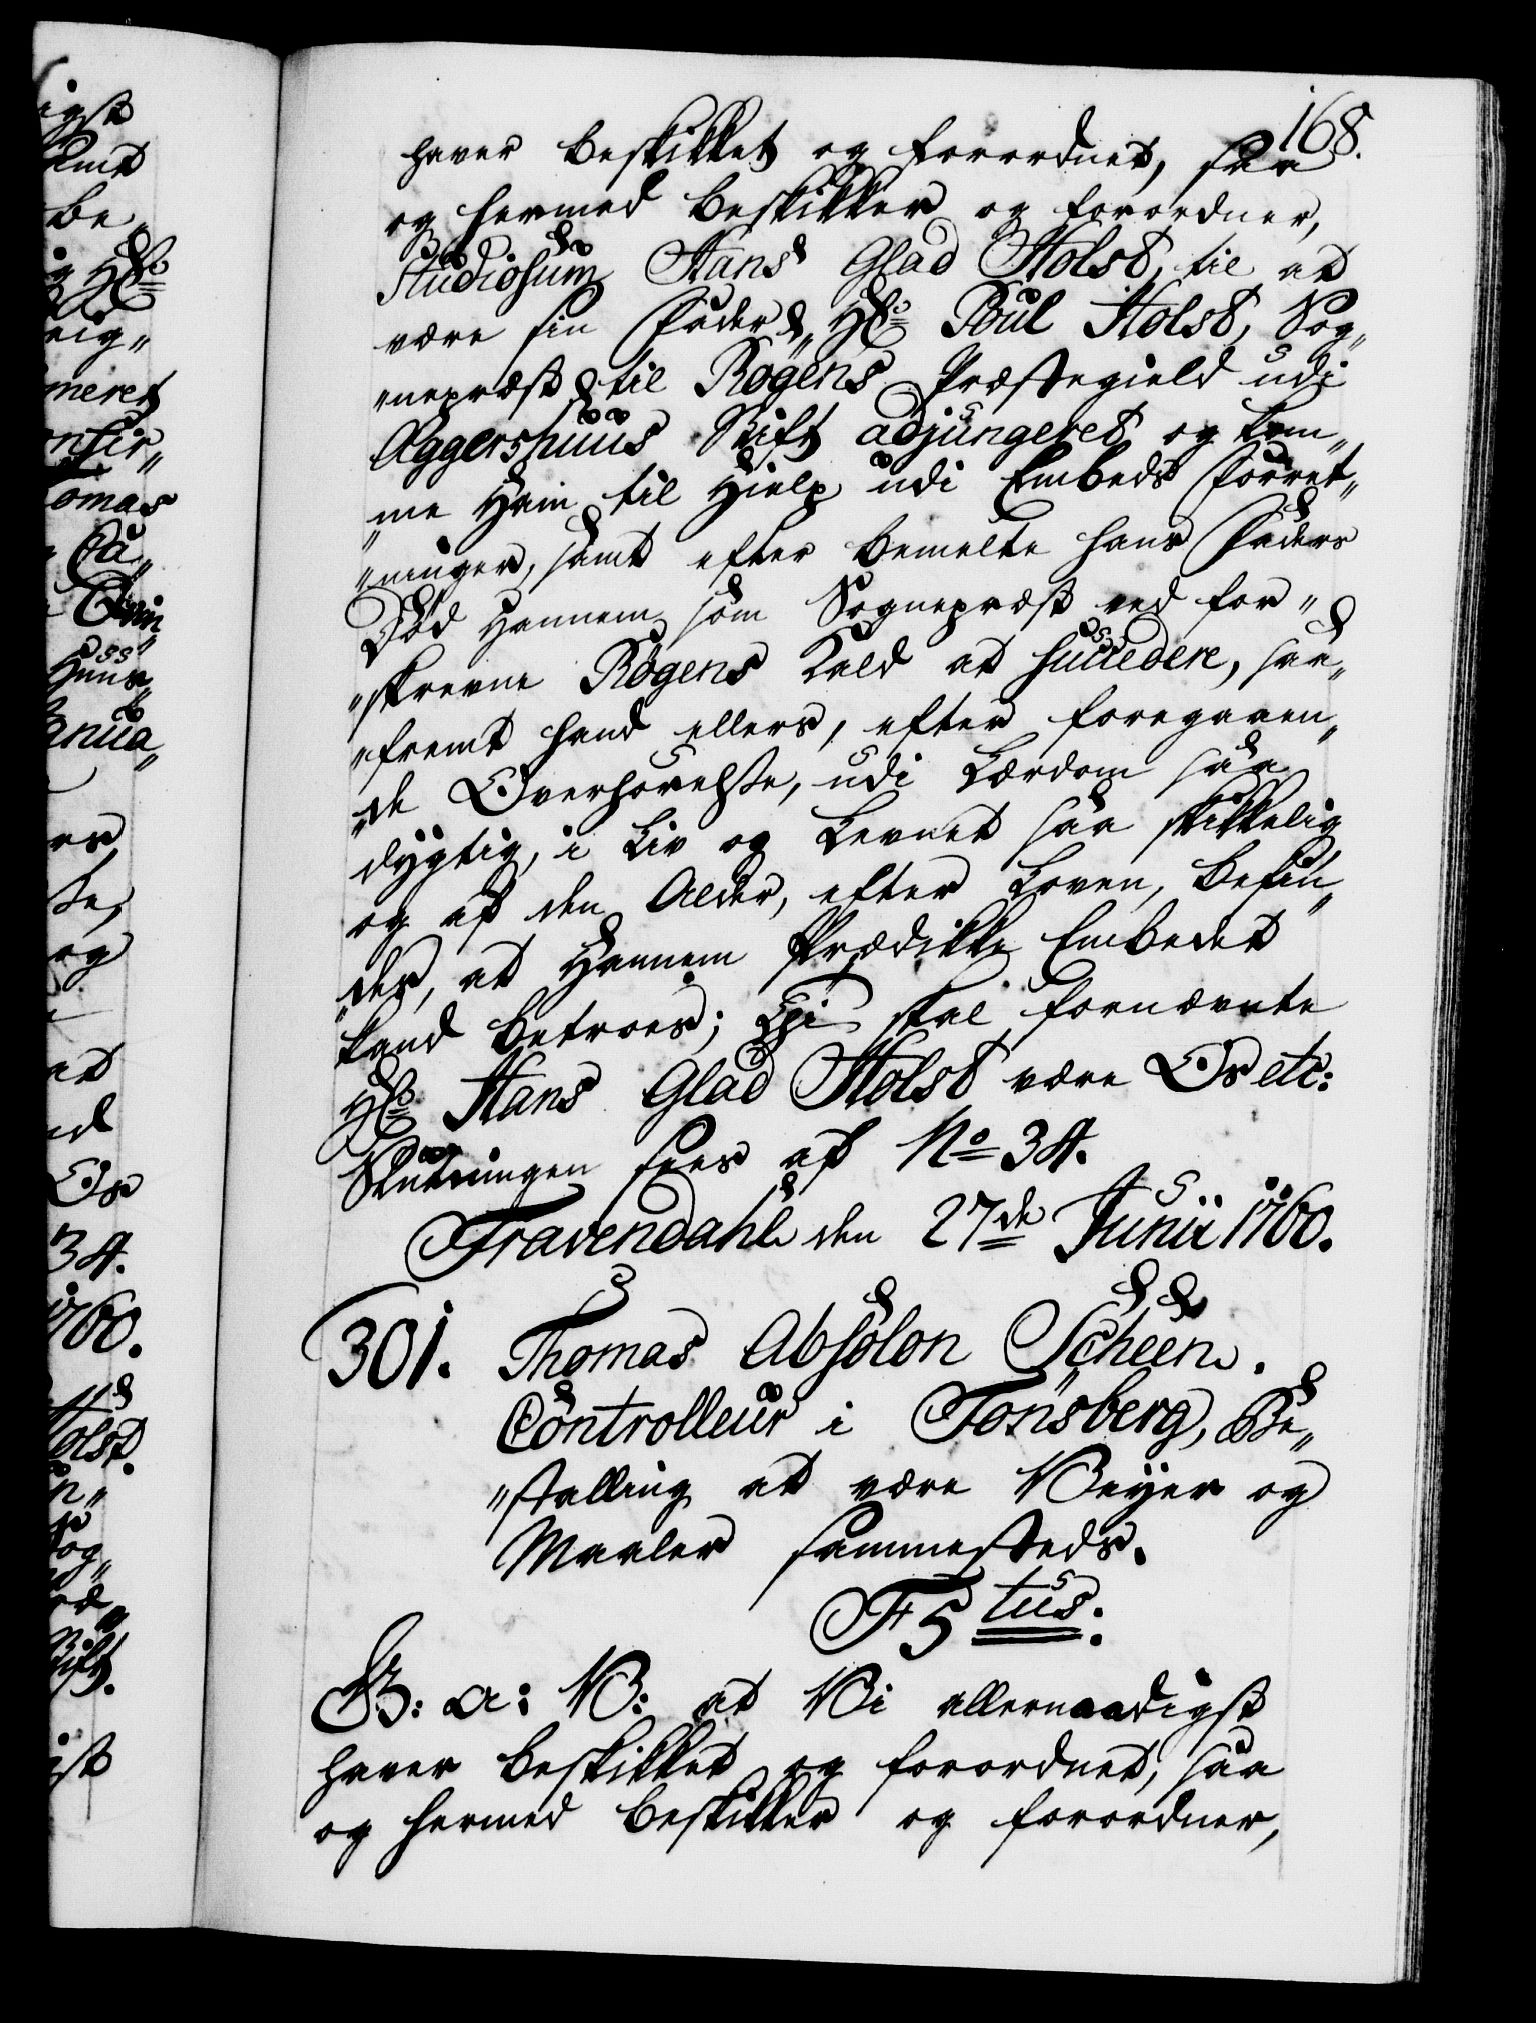 168.
haver beskikket og forordnet, saa
og hermed beskikker og forordner,
Studiosum Hans Glad Holst, til at
være sin Fader, Hr. Poul Holst, Sog„
„nepræst til Røgens Præstegield udi
Aggershuus Stift adjungeret og kom„
„me Ham til Hielp udi Embeds Forret„
„ninger, samt efter bemelte hans Faders
Død Hannem som Sognepræst ved for„
„skrevne Røgens Kald at succedere, saa„
„fremt hand ellers, efter foregaaen„
„de Overhørelse, udi Lærdom saa
dygtig, i Liv og Levnet saa skikkelig
og af den Alder, efter Loven, befin„
„des, at Hannem Prædikke Embedet
kand betroes; Thi skal fornævnte
Hr. Hans Glad Holst være Os etc:
Slutningen sees af No 34.
Travendahl den 27de Junii 1760.
301. Thomas Absolon Scheen.
Controlleur i Tønsberg, Be„
„stalling at være Veyer og
Maaler sammesteds.
F5tus.
G: A: V: at Vi allernaadigst
haver beskikket og forordnet, saa
og hermed beskikker og forordner,